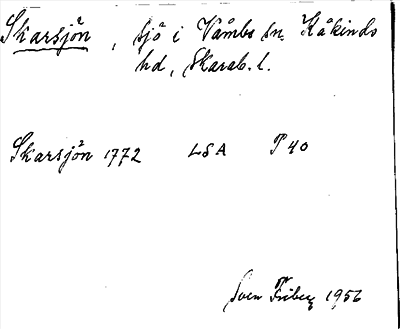 Skarsjön, sjö i Våmbs sn. Kåkinds
hd, Skarab. l.
Skarsjön 1772 LSA P 40
Sven Friberg 1956